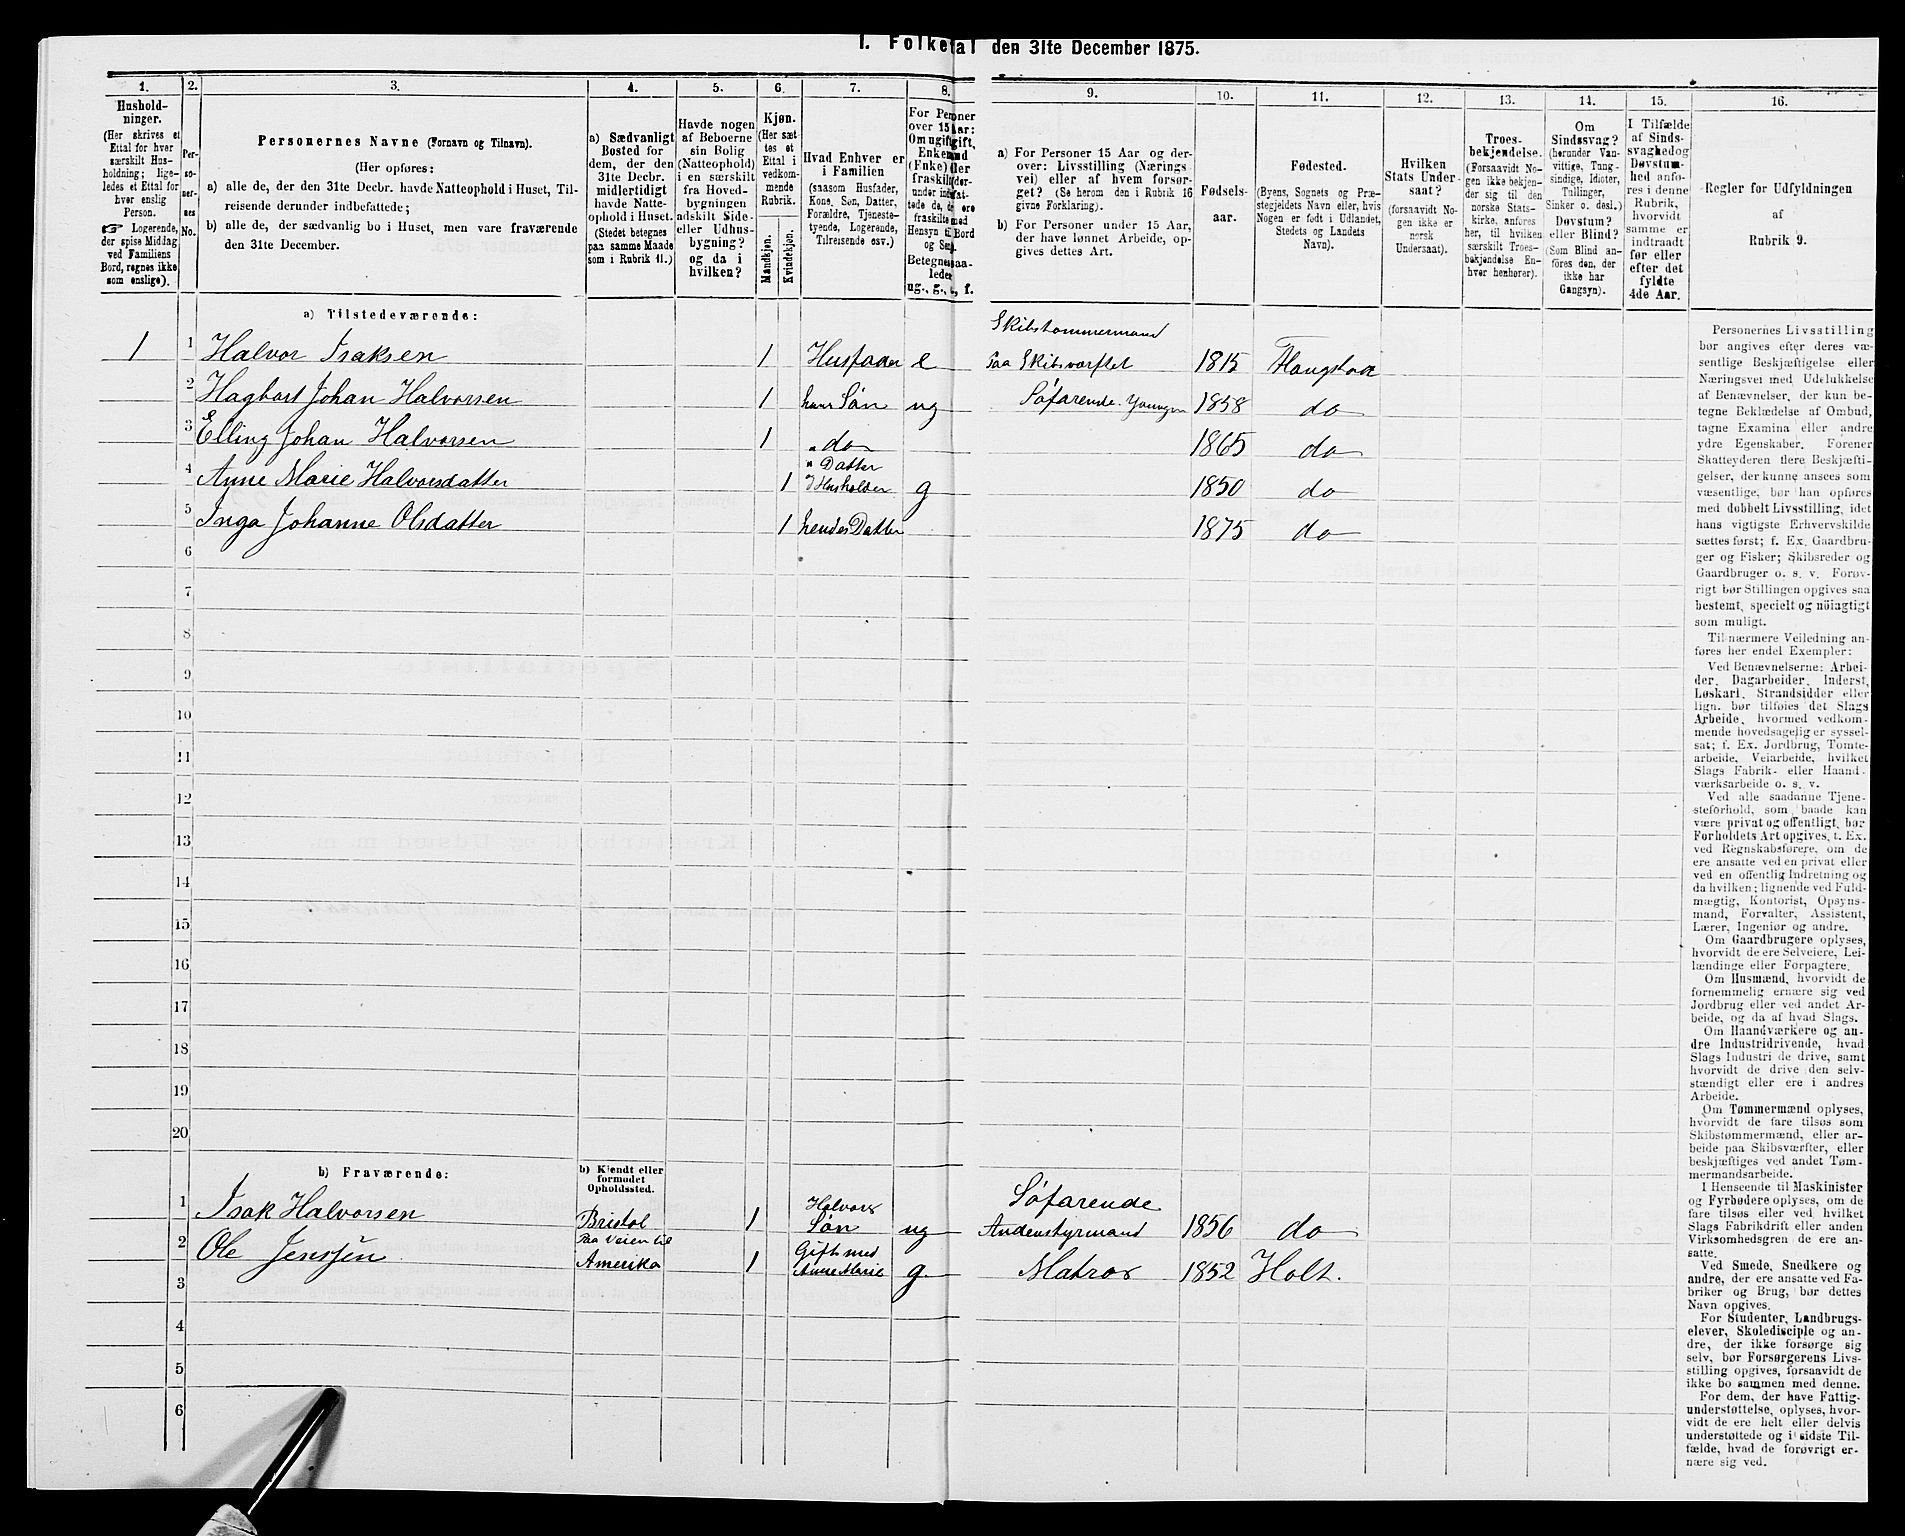 I. Folketal den 31te December 1875.
1. 2. 3. 4. 5. 6. 7. 8. 9. 10. 11. 12. 13. 14. 15. 16.
Hushold-
ninger.
(Her skrives et
Ettal for hver
særskilt Hus-
holdning; lige-
ledes et Ettal for
hver enslig
Person.
☞ Logerende,
der spise Middag
ved Familiens
Bord, regnes ikke
som enslige).
Per-
so-
ner-
nes
No.
Personernes Navne (Fornavn og Tilnavn).
(Her opføres:
a) alle de, der den 31te Decbr. havde Natteophold i Huset, Til-
reisende derunder indbefattede;
b) alle de, der sædvanlig bo i Huset, men vare fraværende
den 31te December.
a) Sædvanligt
Bosted for
dem, der den
31te Decbr.
midlertidigt
havde Natte-
ophold i Huset.
(Stedet betegnes
paa samme Maade
som i Rubrik 11.)
Havde nogen
af Beboerne
sin Bolig
(Natteophold)
i en særskilt
fra Hoved-
bygningen
adskilt Side-
eller Udhus-
bygning?
og da i
hvilken?
Kjøn.
(Her sæt-
tes et
Ettal i
vedkom-
mende
Rubrik.
Mandkjøn.
Kvindekjøn.
Hvad Enhver er
i Familien
(saasom Husfader,
Kone, Søn, Datter,
Forældre, Tjeneste-
tyende, Logerende,
Tilreisende osv.)
For Personer
over 15 Aar:
Om ugift, gift,
Enkemand
(Enke) eller
fraskilt
Betegnes saa-
ledes:
ug., g., e., f.
a) For Personer 15 Aar og der-
over: Livsstilling (Nærings
vei) eller af hvem forsør-
get? (Se herom den i Rubrik 16
givne Forklaring).
b) For Personer under 15 Aar,
der have lønnet Arbeide, op-
gives dettes Art.
Fødsels-
aar.
Fødested.
(Byens, Sognets og Præ-
stegjeldets Navn eller, hvis
Nogen er født i Udlandet,
Stedets og Landets
Navn).
Hvilken
Stats Under-
saat?
(forsaavidt No-
gen ikke er
norsk
Undersaat).
Troes-
bekjendelse.
(Forsaavidt No-
gen ikke bekjen-
der sig til den
norske Stats-
kirke, anføres
her, til hvilken
særskilt Troes-
bekjendelse En-
hver henhører).
Om
Sindssvag?
(herunder Van-
vittige, Tung-
sindige, Idioter,
Tullinger,
Sinker o. desl.)
Døvstum?
eller Blind?
(Som Blind an-
føres den, der
ikke har
Gangsyn).
I Tilfælde
af Sinds-
svaghed og
Døvstum-
hed anfø-
res i denne
Rubrik,
hvorvidt
samme er
indtraadt
før eller
efter det
fyldte
4de Aar.
Regler for Udfyldningen
af
Rubrik 9.
a) Tilstedeværende:
1 1 Halvor Isaksen 1 Husfader e Skibstømmermand
paa Skibsværftet 1815 Flangstad
2 Hagbart Johan Halvorsen 1 hans Søn ug Søfarende. Youngm 1858 do
3 Elling Johan Halvorsen 1 " do 1865 do
4 Anne Marie Halvorsdatter 1 " Datter
Husholder g 1850 do
5 Inga Johanne Olsdatter 1 hendes Datter 1875 do
6
7
8
9
10
11
12
13
14
15
16
17
18
19
20
b) Fraværende:
b) Kjendt eller
formodet
Opholdssted.
1 Isak Halvorsen Bristol 1 Halvors
Søn ug Søfarende
Andenstyrmand 1856 do
2 Ole Jenssen Paa Veien til
Amerika 1 Gift med
Anne Marie g. Matros 1852 Holt.
3
4
5
6
Personernes Livsstilling
bør angives efter deres væ-
sentlige Beskjæftigelse eller
Næringsvei med Udelukkelse
af Benævnelser, der kun be-
tegne Beklædelse af Ombud,
tagne Examina eller andre
ydre Egenskaber. Forener
Skatteyderen flere Beskjæfti-
gelser, der kunne ansees som
væsentlige, bør han opføres
med dobbelt Livsstilling, idet
hans vigtigste Erhvervskilde
sættes først; f. Ex. Gaardbru-
ger og Fisker; Skibsreder og
Gaardbruger o. s. v. Forøv-
rigt bør Stillingen opgives saa
bestemt, specielt og nöiagtigt
som muligt.
Til nærmere Veiledning an-
føres her endel Exempler:
Ved Benævnelserne: Arbei-
der, Dagarbeider, Inderst,
Løskarl, Strandsidder eller
lign. bør tilføies det Slags
Arbeide, hvormed vedkom-
mende hovedsagelig er syssel-
sat; f. Ex. Jordbrug, Tomte-
arbeide, Veiarbeide, hvilket
Slags Fabrik- eller Haand-
værksarbeide o. s. v.
Ved alle saadanne Tjene-
steforhold, som baade kan
være privat og offentligt, bør
Forholdets Art opgives, t. Ex.
ved Regnskabsførere, om de
ere ansatte ved en privat eller
ved en offentlig Indretning og
da hvilken; lignende ved Fuld-
mægtig, Kontorist, Opsyns-
mand, Forvalter, Assistent,
Lærer, Ingeniør og andre.
Om Gaardbrugere oplyses,
hvorvidt de ere Selveiere, Lei-
lændinge eller Forpagtere.
Om Husmænd, hvorvidt de
fornemmelig ernære sig ved
Jordbrug eller ved andet Ar-
beide, og da af hvad Slags.
Om Haandværkere og an-
dre Industridrivende, hvad
Slags Industri de drive, samt
hvorvidt de drive den selv-
stændigt eller ere i andres
Arbeide.
Om Tømmermænd oplyses,
hvorvidt de fare tilsøs som
Skibstømmermænd, eller ar-
beide paa Skibsværfter, eller
beskjæftiges ved andet Tøm-
mermandsarbeide.
I Henseende til Maskinister
og Fyrbødere oplyses, om de
fare tilsøs eller ved hvilket
Slags Fabrikdrift eller anden
Virksomhedsgren de ere an-
satte.
Ved Smede, Snedkere og
andre, der ere ansatte ved Fa-
briker og Brug, bør dettes
Navn opgives.
For Studenter, Landbrugs-
elever, Skoledisciple og an-
dre, der ikke forsørge sig
selv, bør Forsørgerens Livs-
stilling opgives, forsaavidt de
ikke bo sammen med denne.
For dem, der have Fattig-
understøttelse, oplyses, hvor-
vidt de ere helt eller delvis
understøttede og i sidste Til-
fælde, hvad de forøvrigt er-
nære sig ved.